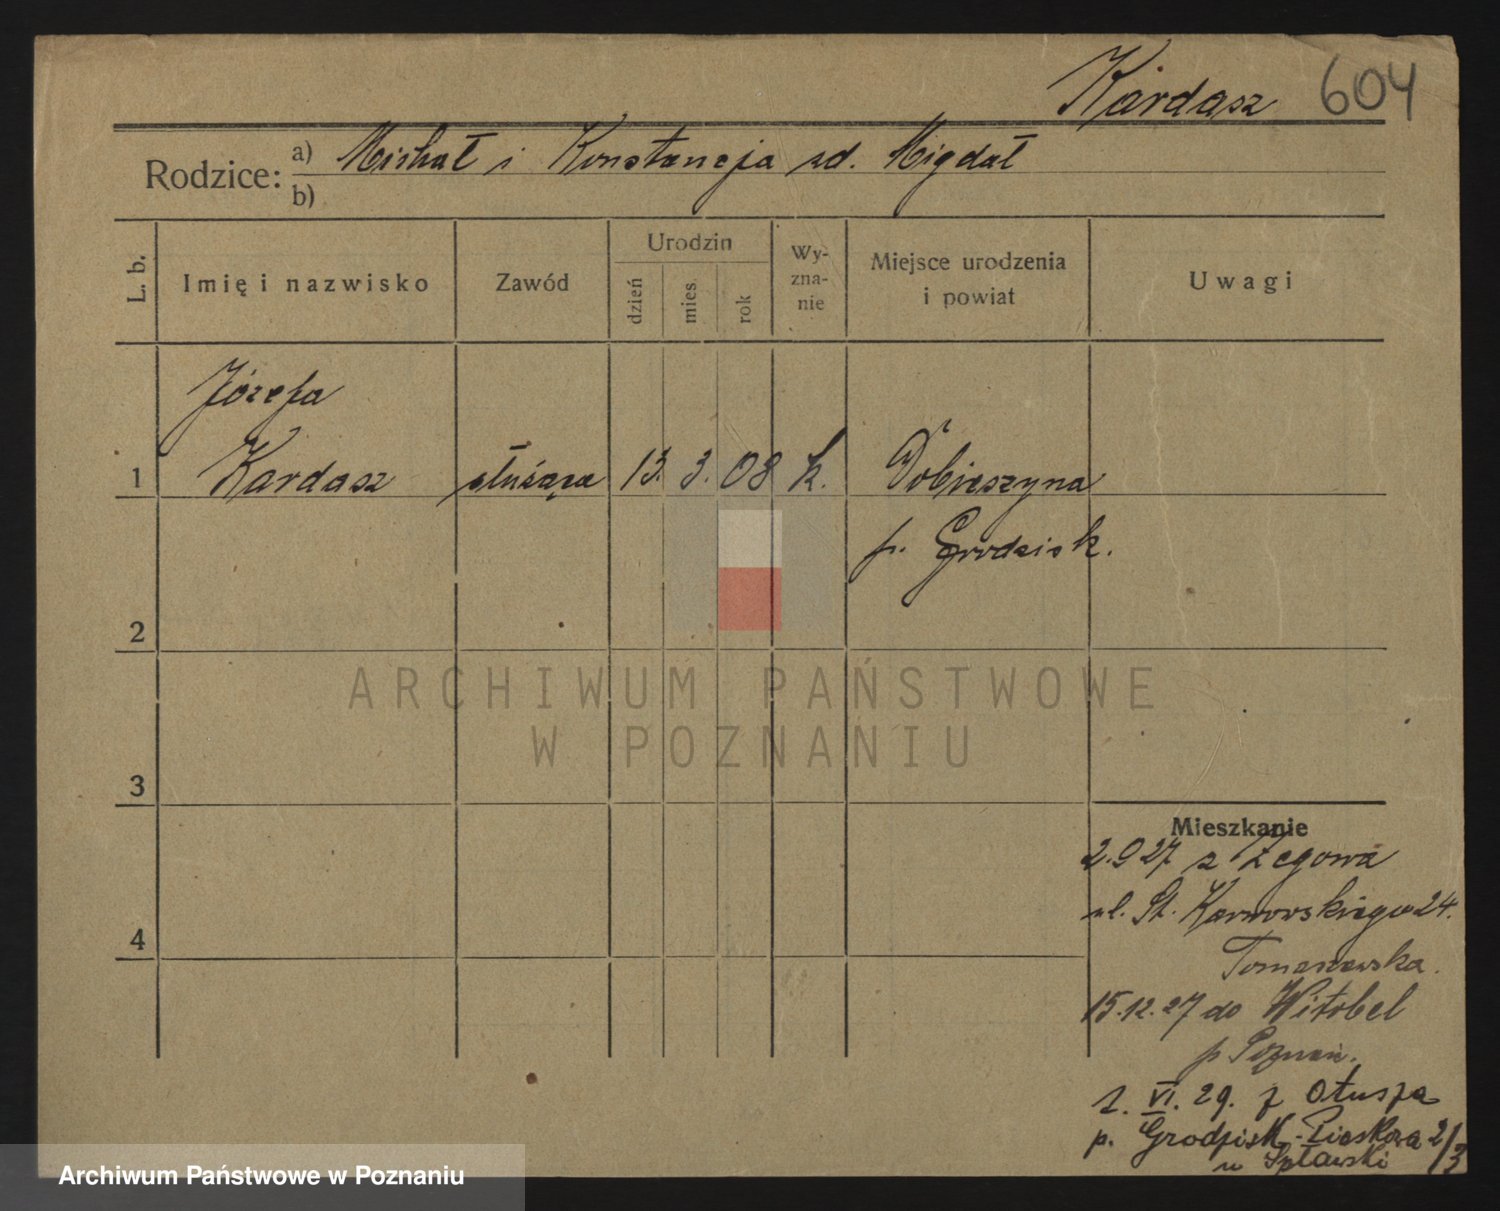 Kardasz 604
Rodzice: a) Michał i Konstancja zd. Migdał
b)
L. b. Imię i nazwisko Zawód Urodzin dzień mies. rok Wy-zna-nie Miejsce urodzenia i powiat Uwagi
Józefa
1 Kardasz służąca 13. 3. 08 k. Dobieszyna
p. Grodzisk.
2
ARCHIWUM PAŃSTWOWE
W POZNANIU
3
Mieszkanie
2.9 27 z Żegowa
ul. St. Karwowskiego 24.
4
Tomaszewska.
15.12.27 do Witobel
p Poznań.
1. VI. 29. z Otusza
p. Grodzisk - Piaskowa 2/3
u Spławski
Archiwum Państwowe w Poznaniu